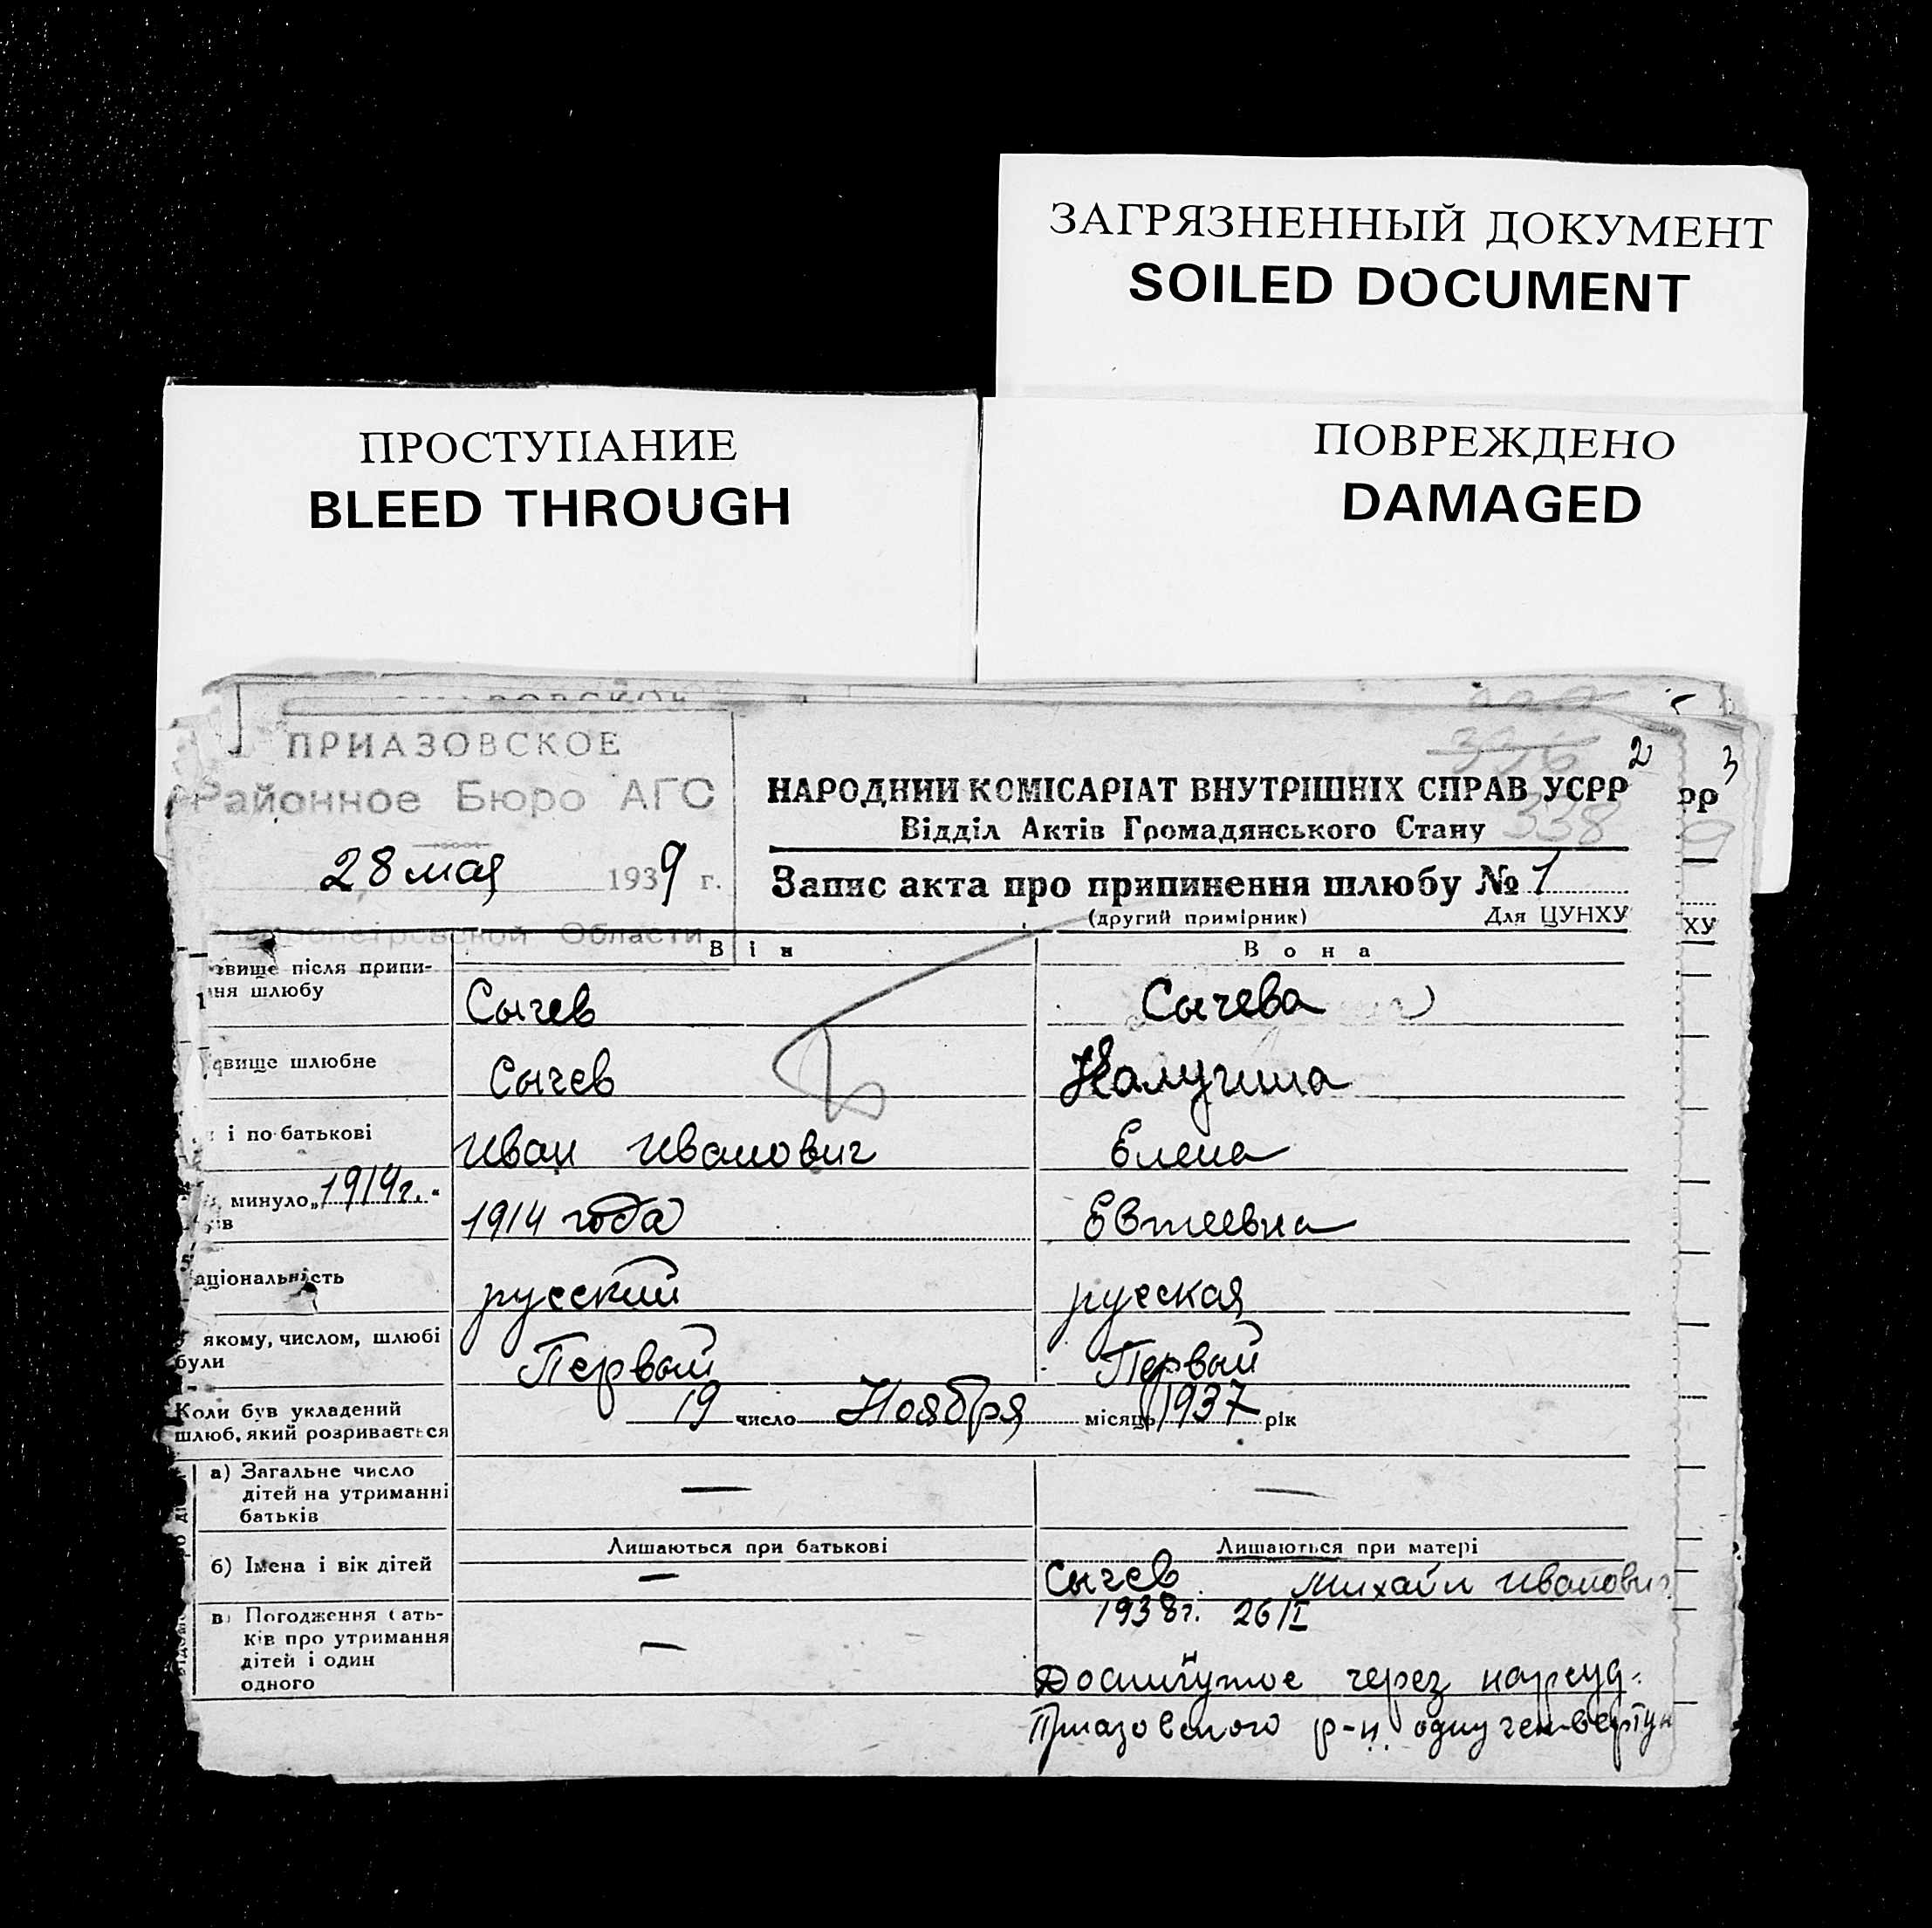 ЗАГРЯЗНЕННЫЙ ДОКУМЕНТ
SOILED DOCUMENT
ПРОСТУПАНИЕ
BLEED THROUGH
ПОВРЕЖДЕНО
DAMAGED
ПРИАЗОВСКОЕ
Районное Бюро АГС
28 мая 1939 г.
Области
336 2
3
НАРОДНИЙ КОМІСАРІАТ ВНУТРІШНІХ СПРАВ УСРР
РР
Відділ Актів Громадянського Стану 338
Запис акта про припинення шлюбу № 1
(другий примірник) Для ЦУНХУ
ХУ
Він Вона
звище після припи-
ння шлюбу
Сычев Сычева
звище шлюбне Сычев Калугина
і по батькові Иван Иванович Елена
минуло „1914г.“
ів
1914 года Евтеевна
аціональність русский русская
якому, числом, шлюбі
були
Первый Первый
Коли був укладений
шлюб, який розривається
19 число Ноября місяць 1937 рік
а) Загальне число
дітей на утриманні
батьків
— —
Лишаються при батькові Лишаються при матері
б) Імена і вік дітей — Сычев Михаил Иванович
1938г. 26/I
в) Погодження бать-
ків про утримання
дітей і один
одного
—
через нарсуд.
Приазовского р-н. одну четверту